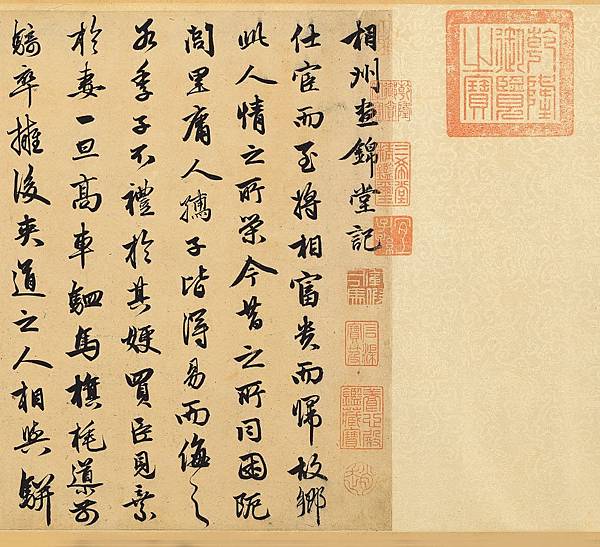 乾隆御覽之寶
三希堂精鑑璽
宜子孫
石渠寶笈
養心殿鑑藏寶
相州晝錦堂記
仕宦而至將相富貴而歸故鄉
此人情之所榮今昔之所同困阨
閭里庸人孺子皆得易而侮之
若季子不禮於其嫂買臣見棄
於妻一旦高車駟馬旗旄導前
騎卒擁後夾道之人相與駢